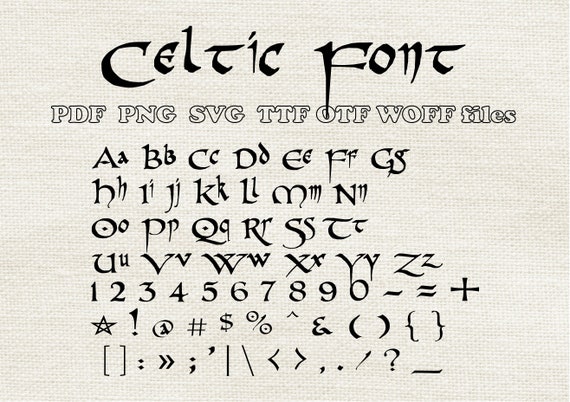 Celtic Font
PDF PNG SVG TTF OTF WOFF files
Aa Bb Cc Dd Ee Ff Gg
Hh Ii Jj Kk Ll Mm Nn
Oo Pp Qq Rr Ss Tt
Uu Vv Ww Xx Yy Zz
1 2 3 4 5 6 7 8 9 0 – = +
☆ ! @ # $ % ^ & ( ) { }
[ ] : » ; ' | \ < > , . / ? _